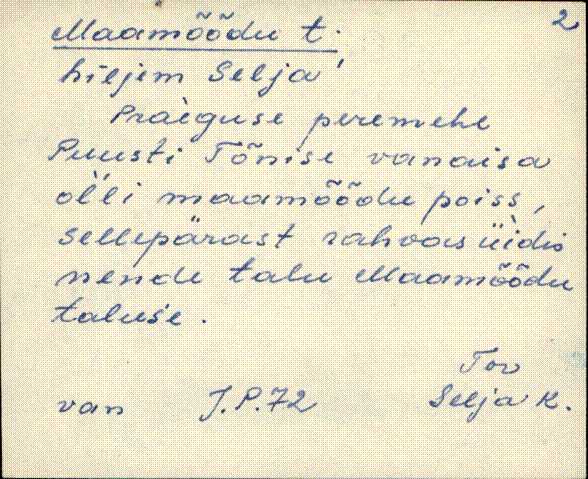 2
Maamõõdu t.
hiljem Selja
Praèguse peremehe
Puusti Tõnise vanaisa
ol̀li maamõõdu poiss,
sellepärast rahvas üìdis
nende talu Maamõõdu
taluśe.
Tov
van J.P.72 Selja K.